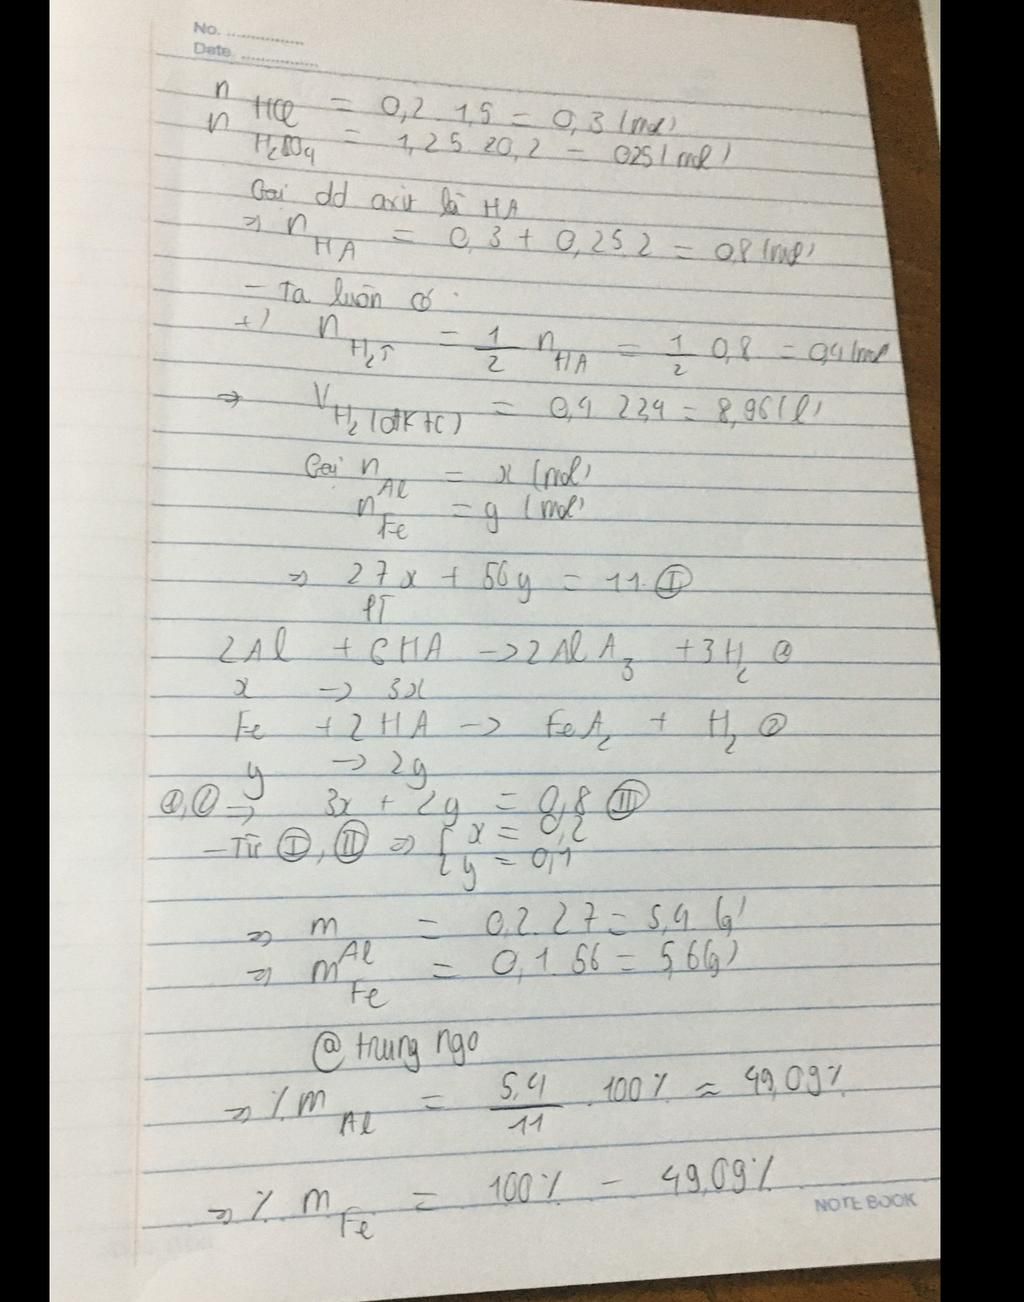 No. ..............
Date. ..............
n HCl = 0,2 . 1,5 = 0,3 (mol)
n H₂SO₄ = 1,25 . 20,2 = 0,25 (mol)
Gọi dd axit là HA
⇒ n HA = 0,3 + 0,25.2 = 0,8 (mol)
- Ta luôn có:
+) n H₂↑ = 1/2 n HA = 1/2 0,8 = 0,4 (mol
⇒ V H₂ (đktc) = 0,4 . 22,4 = 8,96 (l)
Gọi n Al = x (mol)
n Fe = y (mol)
⇒ 27x + 56y = 11. Ⓘ
PT
2Al + 6HA → 2AlA₃ + 3H₂ ①
x → 3x
Fe + 2HA → FeA₂ + H₂ ②
y → 2y
①,② ⇒ 3x + 2y = 0,8 Ⓘ Ⓘ
- Từ Ⓘ, ⒾⒾ ⇒ { x = 0,2
{ y = 0,1
⇒ m Al = 0,2.27 = 5,4 (g)
⇒ m Fe = 0,1.56 = 5,6(g)
@ trung ngo
⇒ % m Al = 5,4/11 . 100% ≈ 49,09%
⇒ % m Fe = 100% - 49,09%
NOTE BOOK